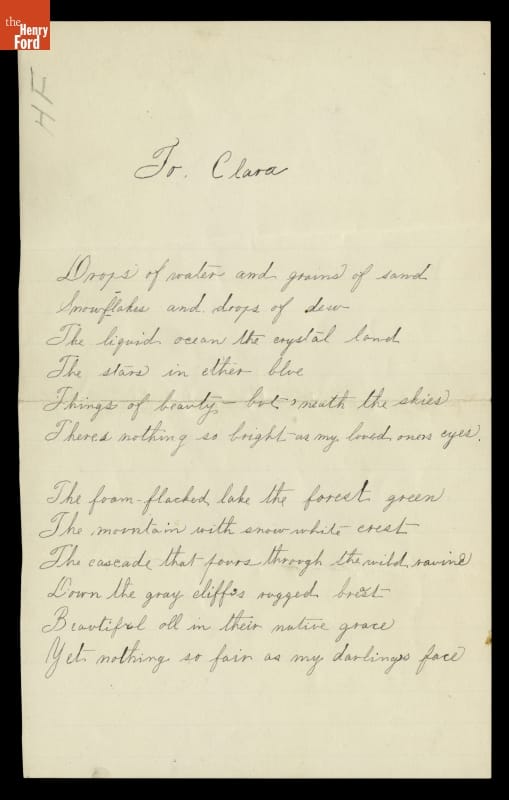 the
Henry
Ford
HF
To. Clara
Drops of water and grains of sand
Snowflakes and drops of dew
The liquid ocean the crystal land
The stars in ether blue
Things of beauty - but 'neath the skies
Theres nothing so bright as my loved ones eyes.
The foam-flacked lake the forest green
The mountain with snow-white crest
The cascade that pours through the wild ravine
Down the gray cliffs rugged brest
Beautiful all in their native grace
Yet nothing so fair as my darlings face